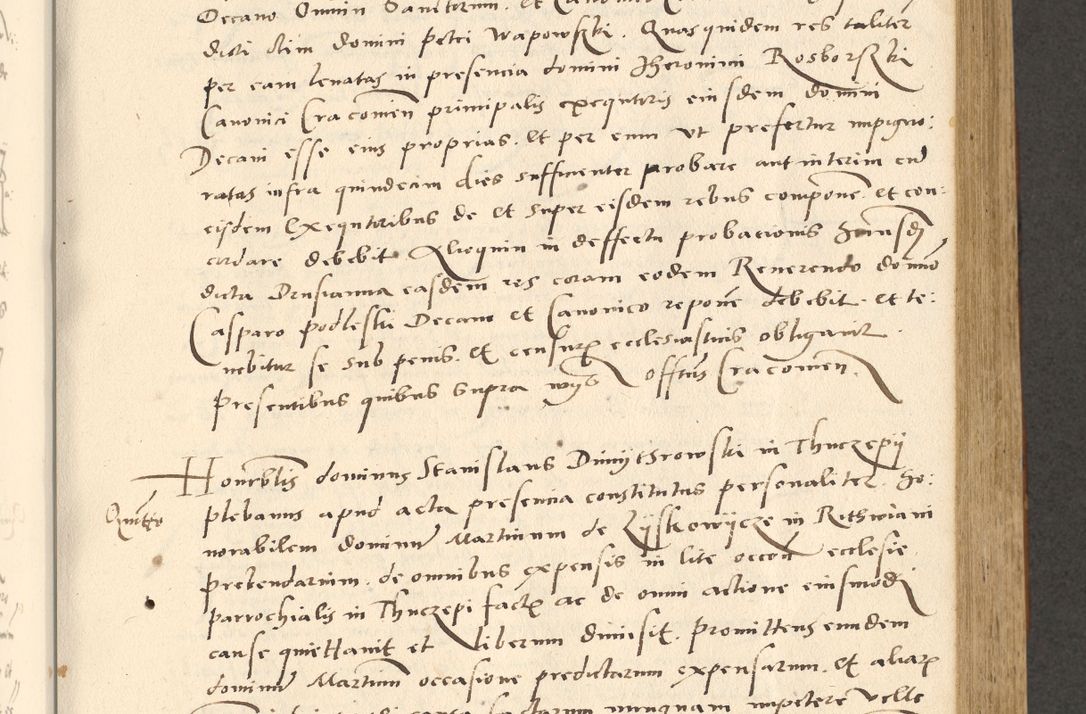 Decano Omnium Sanctorum. et Canonico
dicti olim domini Petri Wapowski. Quasquidem res taliter
per eam levatas in presencia domini Iheronimi Rosborski
Canonici Cracovien principalis exequtoris eiusdem domini
Decani esse eius proprias. Et per eum ut prefertur impigno:
ratas infra quindecim dies sufficienter probare aut interim cum
eisdem Exequtoribus de et super eisdem rebus componere. et con:
cordare debebit Alioquin in deffectu probacionis Humsdi
dicta Drusianna easdem res coram eodem Reverendo domino
Casparo Podleski Decano et Canonico reponere debebit. et te:
nebitur se sub penis. et censuris ecclesiasticis obligavit.
Presentibus quibus supra
offtus Cracovien.
Honorabilis dominus Stanislaus Dimijthrowski in Thuczepij
Quittatio
plebanus apud acta presencia constitutus personaliter. Ho:
norabilem dominum Martinum de Zijskowijcze in Rithwiani
prebendarium. de omnibus expensis in lite occone ecclesie
parrochialis in Thuczepi factis ac de omni actione eiusmodi
cause quiettavit et liberum dimisit. Promittens eundem
dominum Martinum occasione predictarum expensarum. et aliarum
factarum nunquam impetere velle